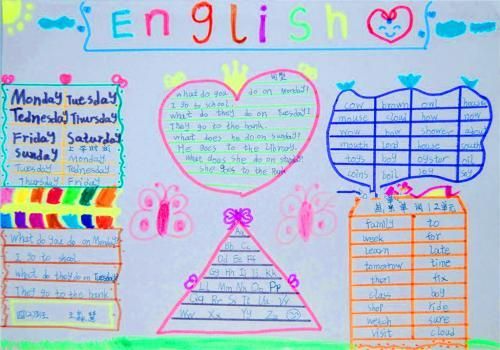 English
Monday Tuesday
Tednesday Thursday
Friday Saturday
Sunday
Monday
Tuesday Tednesday
Thursday Friday
What do you do on Monday?
I go to shool
What do they do on Tuesday
They go to the bank
What do you do on Monday?
I go to school.
What do they do on Tuesday?
They go to the bank.
What does he do on Sunday?
He goes to the library.
What does she do on
She goes to the
cow brown owl house
mouse cloud how now
wow how shower about
mouth lord house south
toys boy oyster oil
coins boil boy soy
Aa
Bb Cc
Dd Ee Ff
Gg Hh Ii Jj Kk
Ll Mm Nn Oo Pp
Qq Rr Ss Tt Uu Vv
Ww Xx Yy Zz
family to
week for
learn late
tomorrow time
fix
class boy
shop ride
watch sure
visit cloud